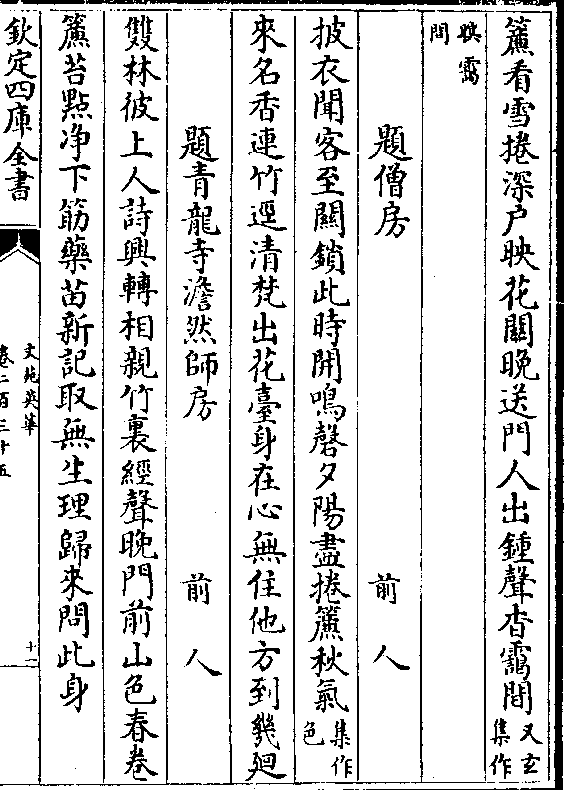 簾看雪捲深户映花關晚送門人出鍾聲杳靄間又玄集作
暝靄間
題僧房　前人
披衣聞客至關鎖此時開鳴磬夕陽盡捲簾秋氣集作色
來名香連竹逕清梵出花臺身在心無住他方到幾廻
題青龍寺澹然師房　前人
雙林彼上人詩興轉相親竹裏經聲晚門前山色春卷
簾苔點净下筯藥苗新記取無生理歸來問此身
欽定四庫全書
文苑英華
卷二百三十五
十一